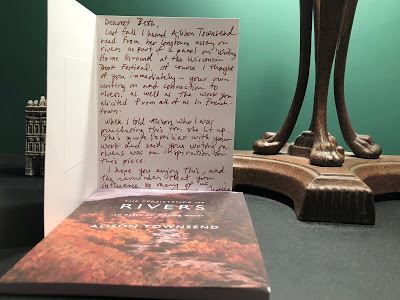 Dearest Beth,
Last fall I heard Alison Townsend
read from her longform essay on
rivers as part of a panel on "Writing
Home Ground at the Wisconsin
Book Festival. Of course I thought
of you immediately – your own
writing on and connection to
rivers, as well as the work you
elicited from all of us in French-
town.
When I told Alison who I was
purchasing this for, she lit up.
She's quite familiar with your
work and said your writing on
rivers was an inspiration for
this piece.
I hope you enjoy this, and
the reminder that you
influence so many of us.
THE PERSISTENCE OF
RIVERS
AN ESSAY ON MOVING WATER
ALISON TOWNSEND